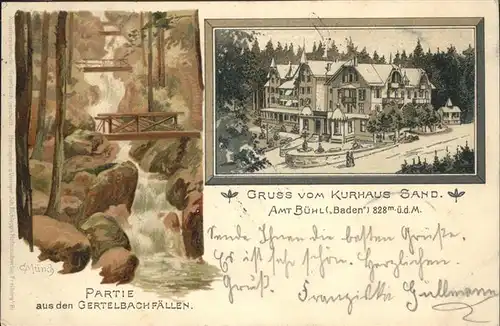 GRUSS VOM KURHAUS SAND.
AMT BÜHL („Baden“) 828 m. ü.d.M.
Sende Ihnen die besten Grüße.
Es ist sehr schön. Herzlichen
Gruß. Franziska
PARTIE
aus den GERTELBACHFÄLLEN.